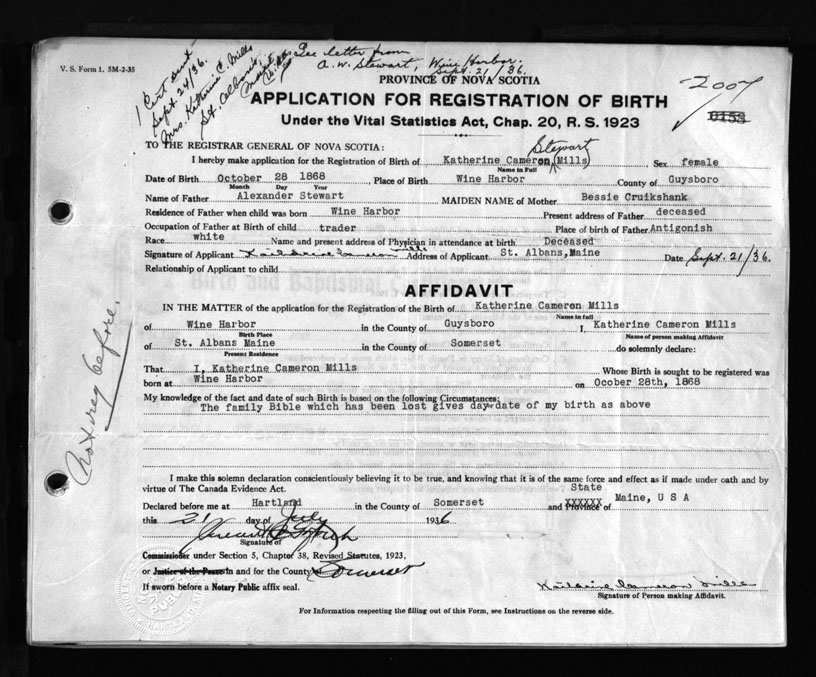 V. S. Form 1. 5M-2-35
1 Cert sent
Sept. 24/36.
Mrs. Katherine C. Mills
St. Albans,
See letter from
A. W. Stewart, Wine Harbor.
Sept. 21/36.
PROVINCE OF NOVA SCOTIA
2007
APPLICATION FOR REGISTRATION OF BIRTH
0153
Under the Vital Statistics Act, Chap. 20, R. S. 1923
TO THE REGISTRAR GENERAL OF NOVA SCOTIA:
Stewart
I hereby make application for the Registration of Birth of Katherine Cameron (Mills), Sex female
Name in Full
Date of Birth October 28 1868, Place of Birth Wine Harbor County of Guysboro
Month Day Year
Name of Father Alexander Stewart MAIDEN NAME of Mother Bessie Cruikshank
Residence of Father when child was born Wine Harbor Present address of Father deceased
Occupation of Father at Birth of child trader Place of birth of Father Antigonish
Race white Name and present address of Physician in attendance at birth Deceased
Signature of Applicant Katharine Cameron Mills Address of Applicant St. Albans, Maine Date Sept. 21/36.
Relationship of Applicant to child
AFFIDAVIT
IN THE MATTER of the application for the Registration of the Birth of Katherine Cameron Mills
Name in full
of Wine Harbor in the County of Guysboro I, Katherine Cameron Mills
Birth Place Name of person making Affidavit
of St. Albans Maine in the County of Somerset do solemnly declare:
Present Residence
That I, Katherine Cameron Mills Whose Birth is sought to be registered was
born at Wine Harbor on Ocober 28th, 1868
My knowledge of the fact and date of such Birth is based on the following Circumstances:
The family Bible which has been lost gives day+date of my birth as above
Not reg before.
I make this solemn declaration conscientiously believing it to be true, and knowing that it is of the same force and effect as if made under oath and by
virtue of The Canada Evidence Act.
State
Declared before me at Hartland in the County of Somerset and XXXXXX Province of Maine, U S A
this 21 day of July 1936
Signature of
Commissioner under Section 5, Chapter 38, Revised Statutes, 1923,
or Justice of the Peace in and for the County of Somerset
If sworn before a Notary Public affix seal.
Katharine Cameron Mills
Signature of Person making Affidavit.
For Information respecting the filling out of this Form, see Instructions on the reverse side.